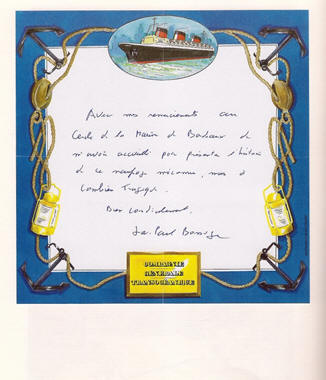 Avec mes remerciements au
Cercle de la Marine de Bordeaux de
m'avoir accueilli pour présenter l'histoire
de ce naufrage méconnu, mais ô
combien tragique.
Bien cordialement,
COMPAGNIE
GÉNÉRALE
TRANSOCÉANIQUE